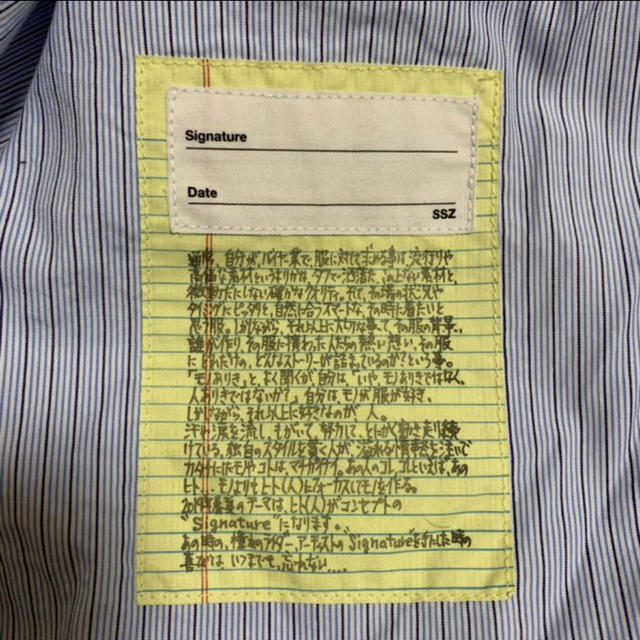 Signature
Date
SSZ
通常、自分がバイヤー業で服に対して求める事は流行りや
高価な素材というよりかな タフで洒落た、この上ない素材と、
微動だにしない確かなクオリティ。そして、その場の状況や
タイミングにピッタリと、自然に合うスマートな、その時に着たいと
思う服。しかしながら、それ以上に大切な事って、その服の背景、
誰が作り、その服に携わった人たちの熱い想い、その服
にどれだけの、どんなストーリーが詰まっているのか?という事。
「モノありき」と、よく聞くが自分は、「いや、モノありきではなく、
人ありきではないか?」自分は、モノが服が好き、
しかしながら、それ以上に好きなのが 人。
汗や涙を流し、もがいて、努力して、とにかく動き走り続
けている、独自のスタイルを貫く人が、溢れる情熱を注いで
カタチにしたモノやコトは、マチガイナイ。あの人のコレ、コレといえば、あの
ヒト…モノよりもヒト(人)にフォーカスしてモノを作る。
2019年春夏のテーマは、ヒト(人)がコンセプトの
"Signature"になります。
あの時の、憧れのライダー、アーティストのSignatureをもらした時の
喜びは、いつまでも、忘れない....